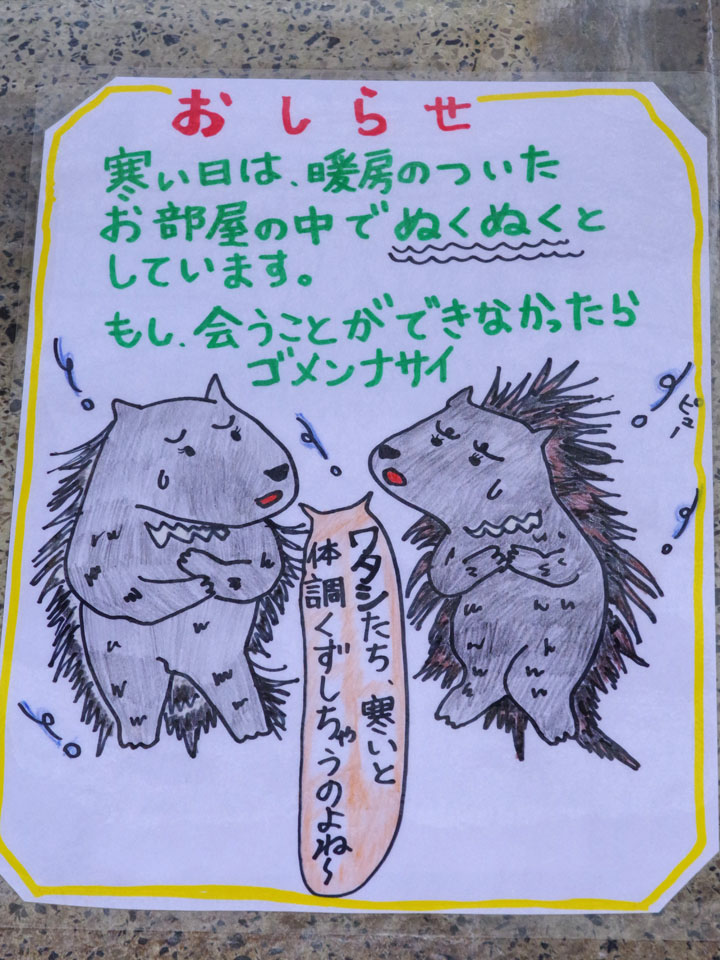 おしらせ
寒い日は、暖房のついた
お部屋の中でぬくぬくと
しています。
もし、会うことができなかったら
ゴメンナサイ
ピュー
ワタシたち、寒いと
体調くずしちゃうのよね～